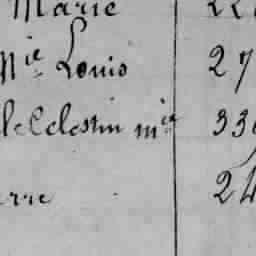 Marie 22
Mie Louis 27
Celestin mie 33
erre 24